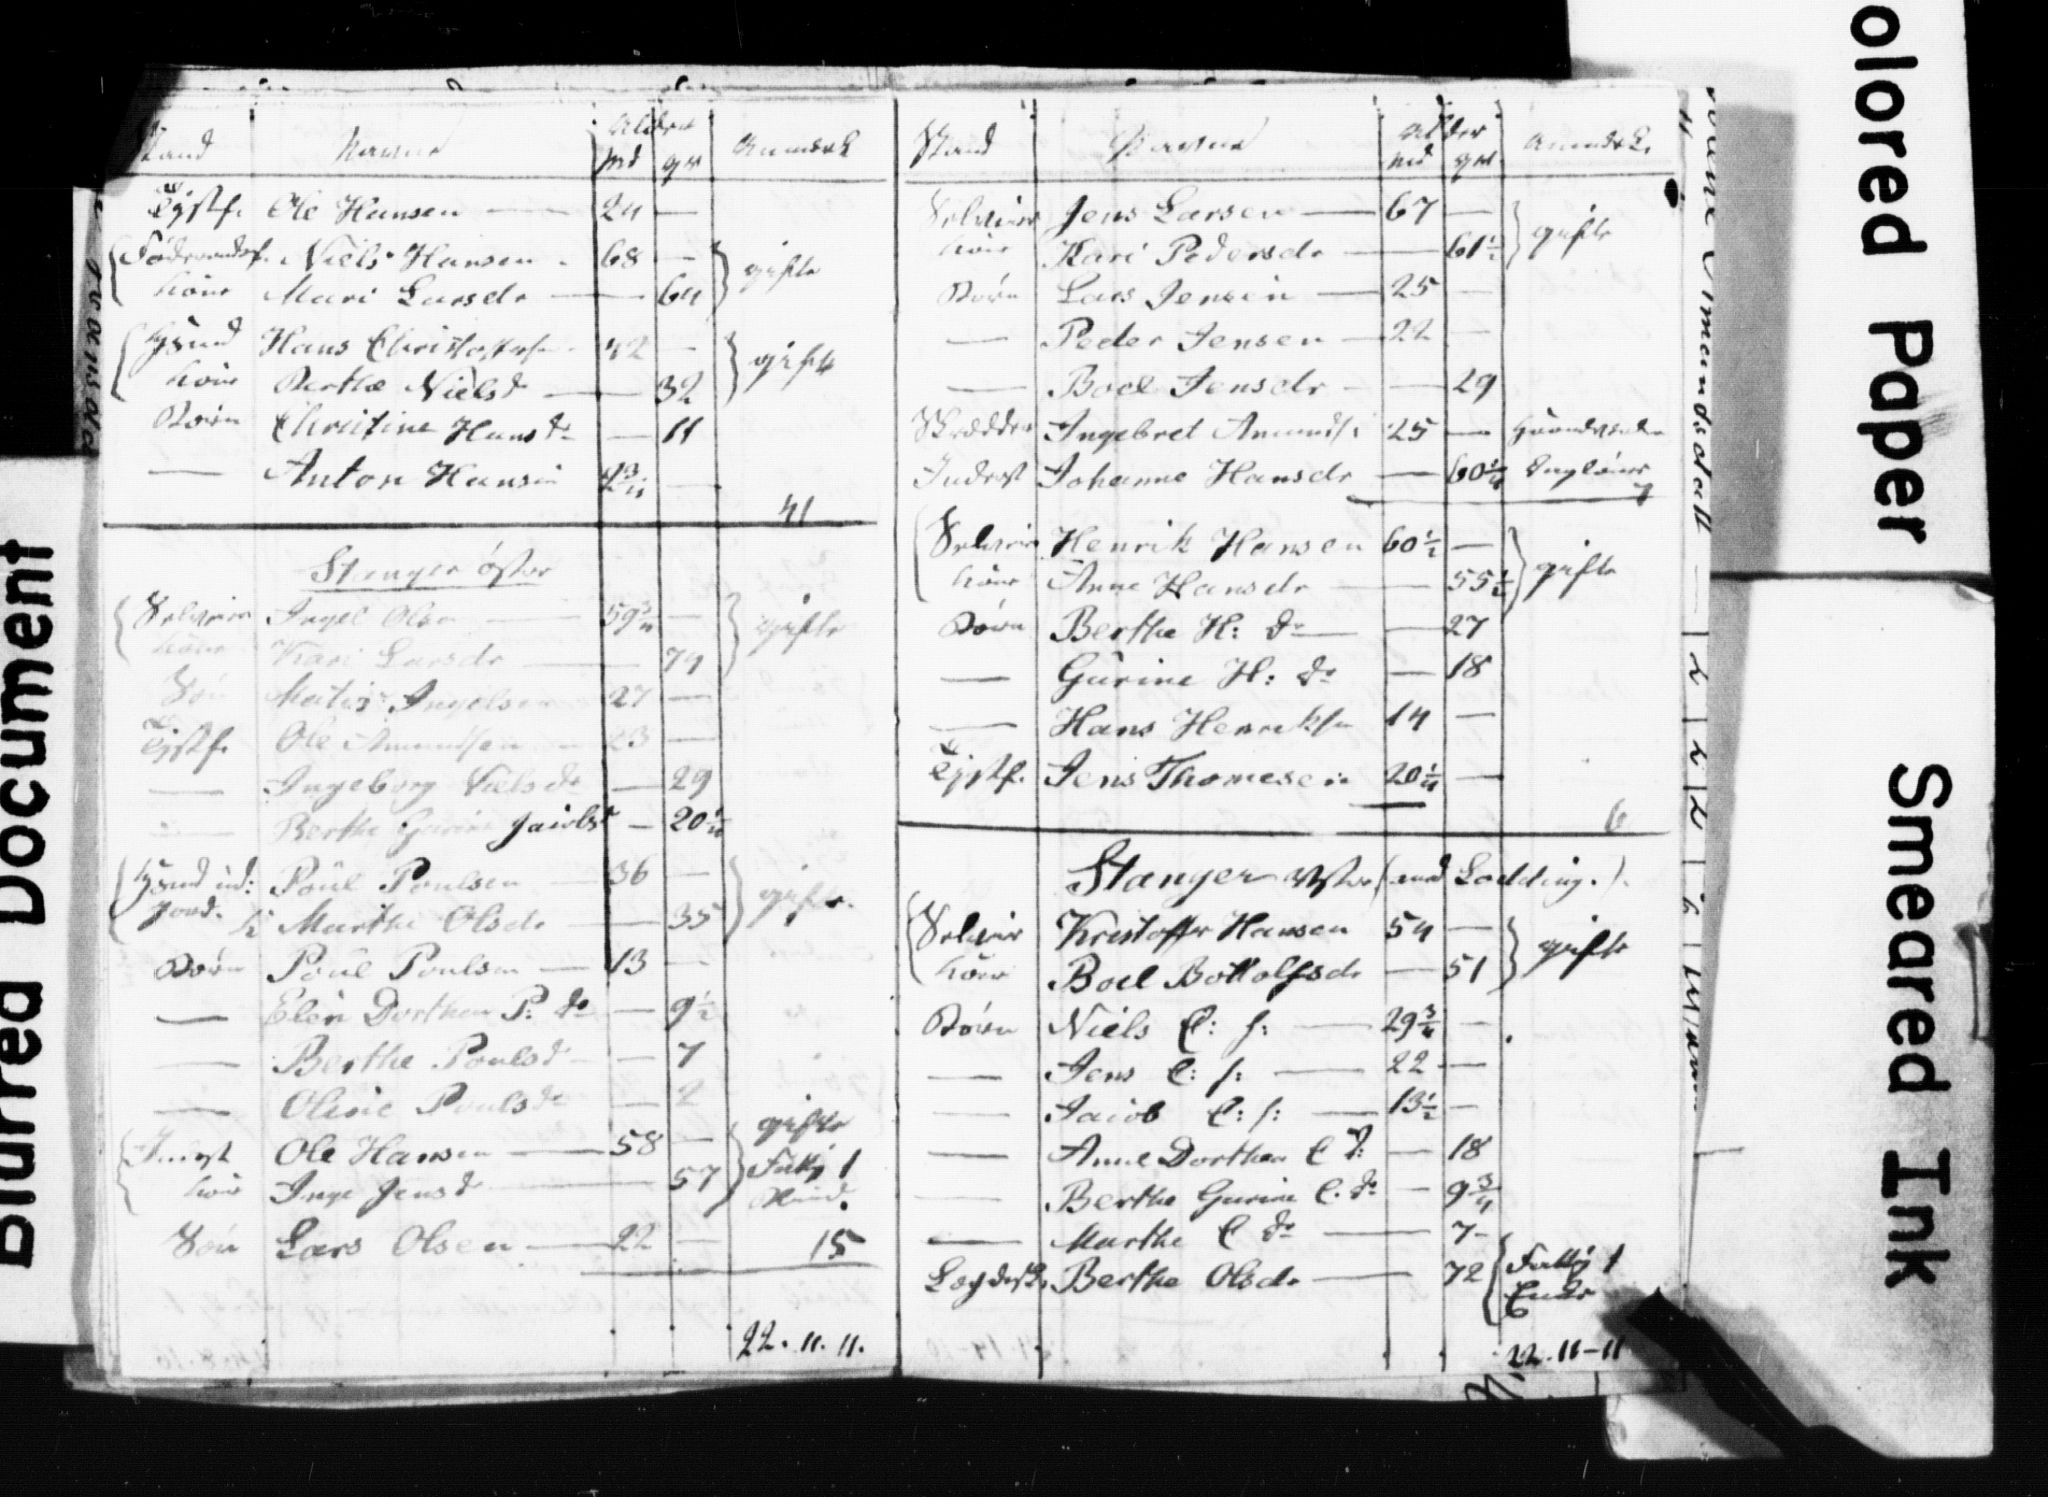 Stand Navne Alder Anmærk
md qv
Tjstf. Ole Hansen — 24 —
Föderaadsf. Niels Hansen - 68 — gifte
Kone Mari Larsdr — 64
Huusmd Hans Christoffers. 42 — gifte
Kone Berthe Nielsd — 32
Børn Christine Hansdr — 11
— Anton Hansen —
41
Stanger öster
Selveier Ingel Olsen — 59 3/4 — gifte
Kone Kari Larsdr — 74
Sön Mathis Ingelsen 27 —
Tjstf. Ole Amundsen — 23 —
— Ingeborg Nielsdr — 29
— Berthe Gurine Jacobsd — 20 1/4
Huusmd ud: Poul Poulsen — 36 — gifte.
Jord. K Marthe Olsdr — 35
Børn Poul Poulsen — 13 —
— Elen Dorthea P: dr — 9 1/2
— Berthe Poulsdr — 7
— Oline Poulsdr — 2
gifte
Inderst Ole Hansen — 58 — Fattig 1
Kone Inge Jensdr — 57
Sön Lars Olsen — 22 — 15
22. 11. 11.
Stand Navne Alder Anmærk.
md qv
Selveier Jens Larsen — 67 — gifte
Kone Kari Pedersdr — 61 1/2
Børn Lars Jensen — 25 —
— Peder Jensen — 22 —
— Boel Jensdr — 29
Skrædder Ingebret Amunds: 25 — Haandværker
Inderst Johanne Hansdr — 60 1/4
7
Selveier Henrik Hansen 60 1/2 — gifte
Kone Anne Hansdr — 55 1/2
Børn Berthe H: dr — 27
— Gurine H: dr — 18
— Hans Henriks. 14 —
Tjstf. Jens Thomesen 20 1/4 —
6
Stanger Vester (med Lodding.).
Selveier Kristoffer Hansen 54 — gifte
Kone Boel Bottolfsdr — 51
Børn Niels C: s: — 29 3/4 —
— Jens C: s: — 22 —
— Jacob C: s: — 13 1/2 —
— Anne Dorthea C d: — 18
— Berthe Gurine C. dr — 9 3/4
— Marthe C dr — 7 -
Lægdslr Berthe Olsdr — 72 Fattig 1
22. 11 - 11
Blurred Document
olored Paper
Smeared Ink